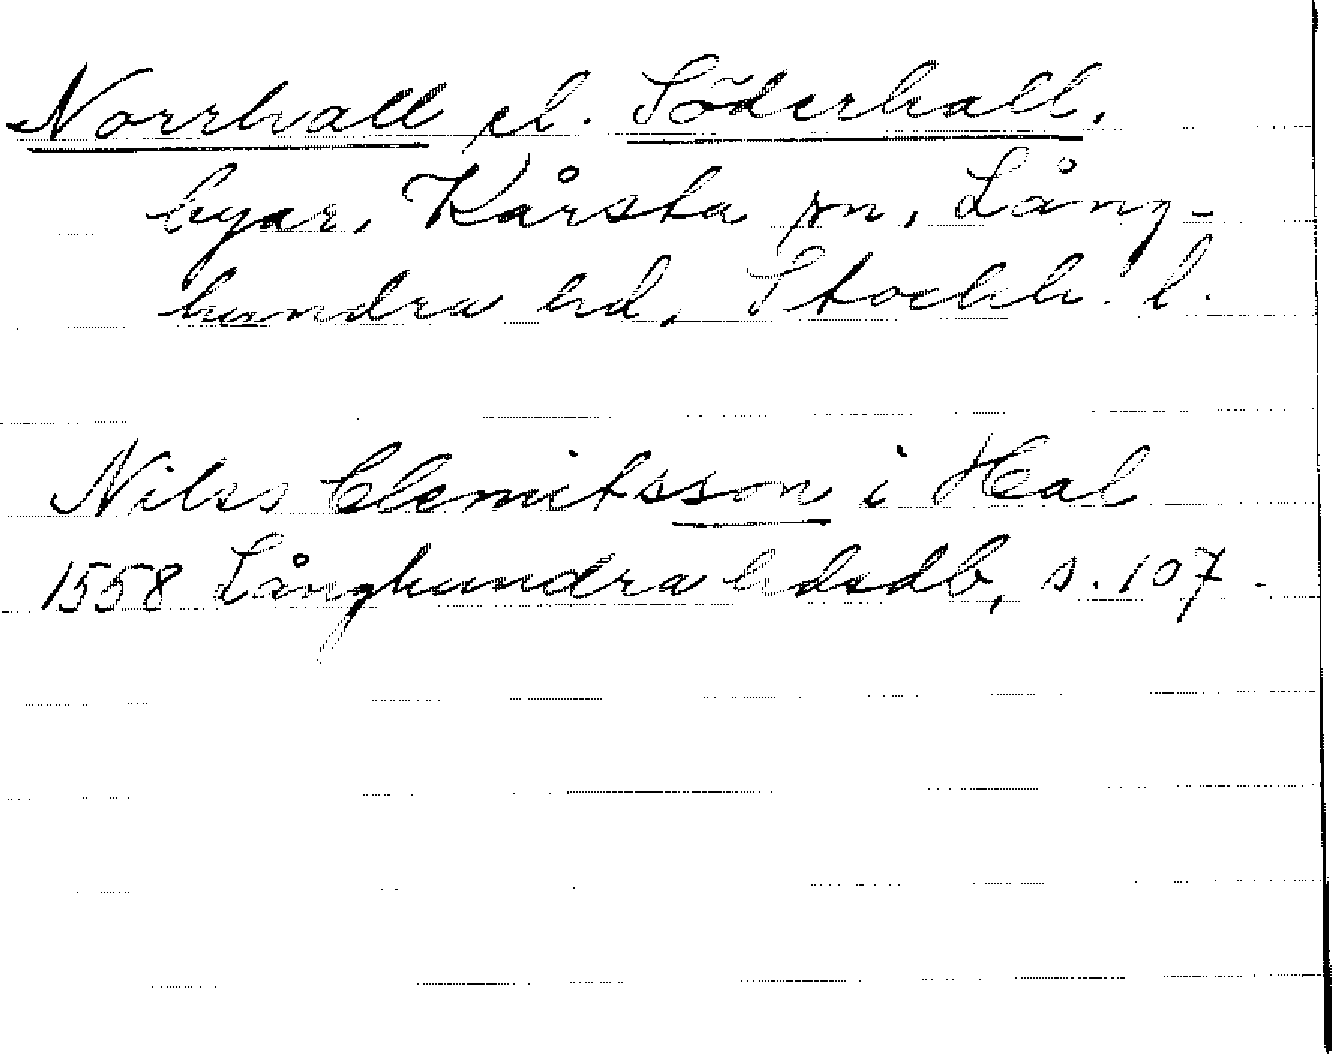 Norrhall el. Söderhall,
byar, Kårsta sn, Lång-
hundra hd, Stockh. l.
Nilss Clemitsson i Hal
1558 Långhundra hdsdb, s. 107.